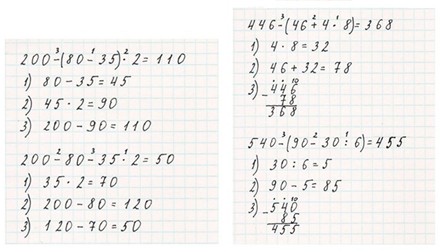 200-(80-35)·2=110
1) 80-35=45
2) 45·2=90
3) 200-90=110
200-80-35·2=50
1) 35·2=70
2) 200-80=120
3) 120-70=50
446-(46+4·8)=368
1) 4·8=32
2) 46+32=78
3) -446
78
368
540-(90-30:6)=455
1) 30:6=5
2) 90-5=85
3) -540
85
455